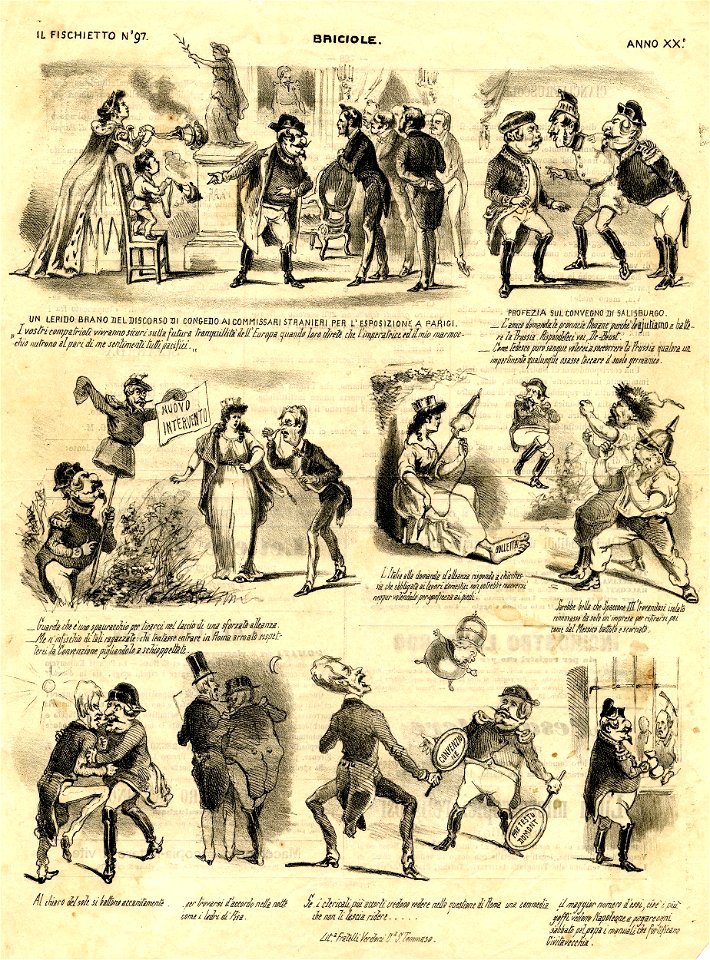 IL FISCHIETTO N° 97.
BRICIOLE.
ANNO XX.°
UN LEPIDO BRANO DEL DISCORSO DI CONGEDO AI COMMISSARI STRANIERI PER L'ESPOSIZIONE A PARIGI.
„ I vostri compatrioti vivranno sicuri sulla futura tranquillità dell'Europa quando loro direte che l'imperatrice ed il mio marmoc-
chio nutrono al pari di me sentimenti tutti pacifici „
PROFEZIA SUL CONVEGNO DI SALISBURGO.
_ L'amico domanda le provincie renane perchè l'ajutiamo a batte-
re la Prussia. Rispondetesi voi, De-Beust.
_ Come tedesco puro sangue volerei a soccorrere la Prussia qualora un
impertinente qualunque osasse toccare il suolo germanico.
NUOVO
INTERVENTO!
BOLLETTA
_ Guarda che è uno spauracchio per tirarci nel laccio di una sforzata alleanza.
_ Me n'infischio di tali ragazzate: chi tentasse entrare in Roma armato rispet-
terei la Convenzione pigliandolo a schioppettate.
L'Italia alla domanda d'alleanza risponda a chicches-
sia che obbligata ai lavori domestici non potrebbe muoversi
neppur volendolo per gonfiezza ai piedi.
Sarebbe bella che Spaccone III° tirandovi in lotta
rimanesse da solo in impresa per ritirarsi poi
come dal Messico battuto e scornato.
CONVENZIO
NE
PRETESTO
DUMONT
Al chiaro del sole si battono accanitamente
. per trovarsi d'accordo nella notte
come i ladri di Pisa.
Se i clericali, più accorti, credono vedere nella questione di Roma una commedia
che non li lascia ridere . . . . .
il maggior numero d'essi, cioè i più
goffi vedono Napoleone a pagare ogni
sabbato pel papa i manuali che fortificano
Civitavecchia.
Lit.ª Fratelli Verdoni V.ª S. Tommaso.